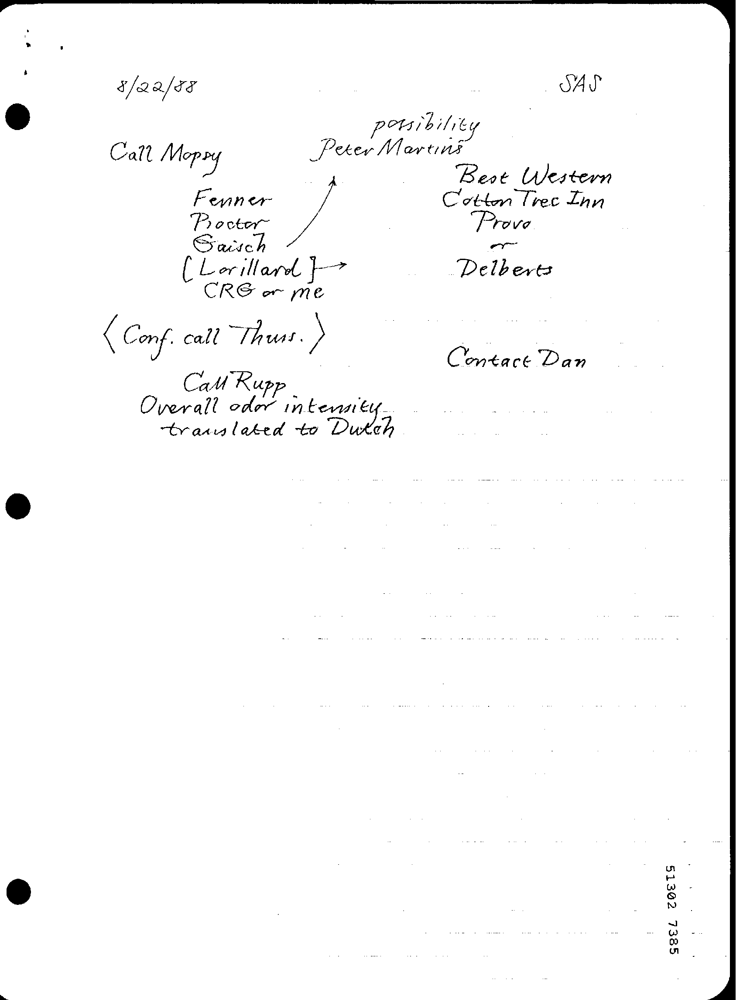 8/22/88
SAS
possibility
Peter Martins
Call Mopsy
Fenner
Proctor
Gaisch
[Lorillard]
CRG or me
Best Western
Cotton Tree Inn
Provo
or
Delberts
<Conf. call Thurs.>
Contact Dan
Call Rupp
Overall odor intensity
translated to Dutch
51302 7385